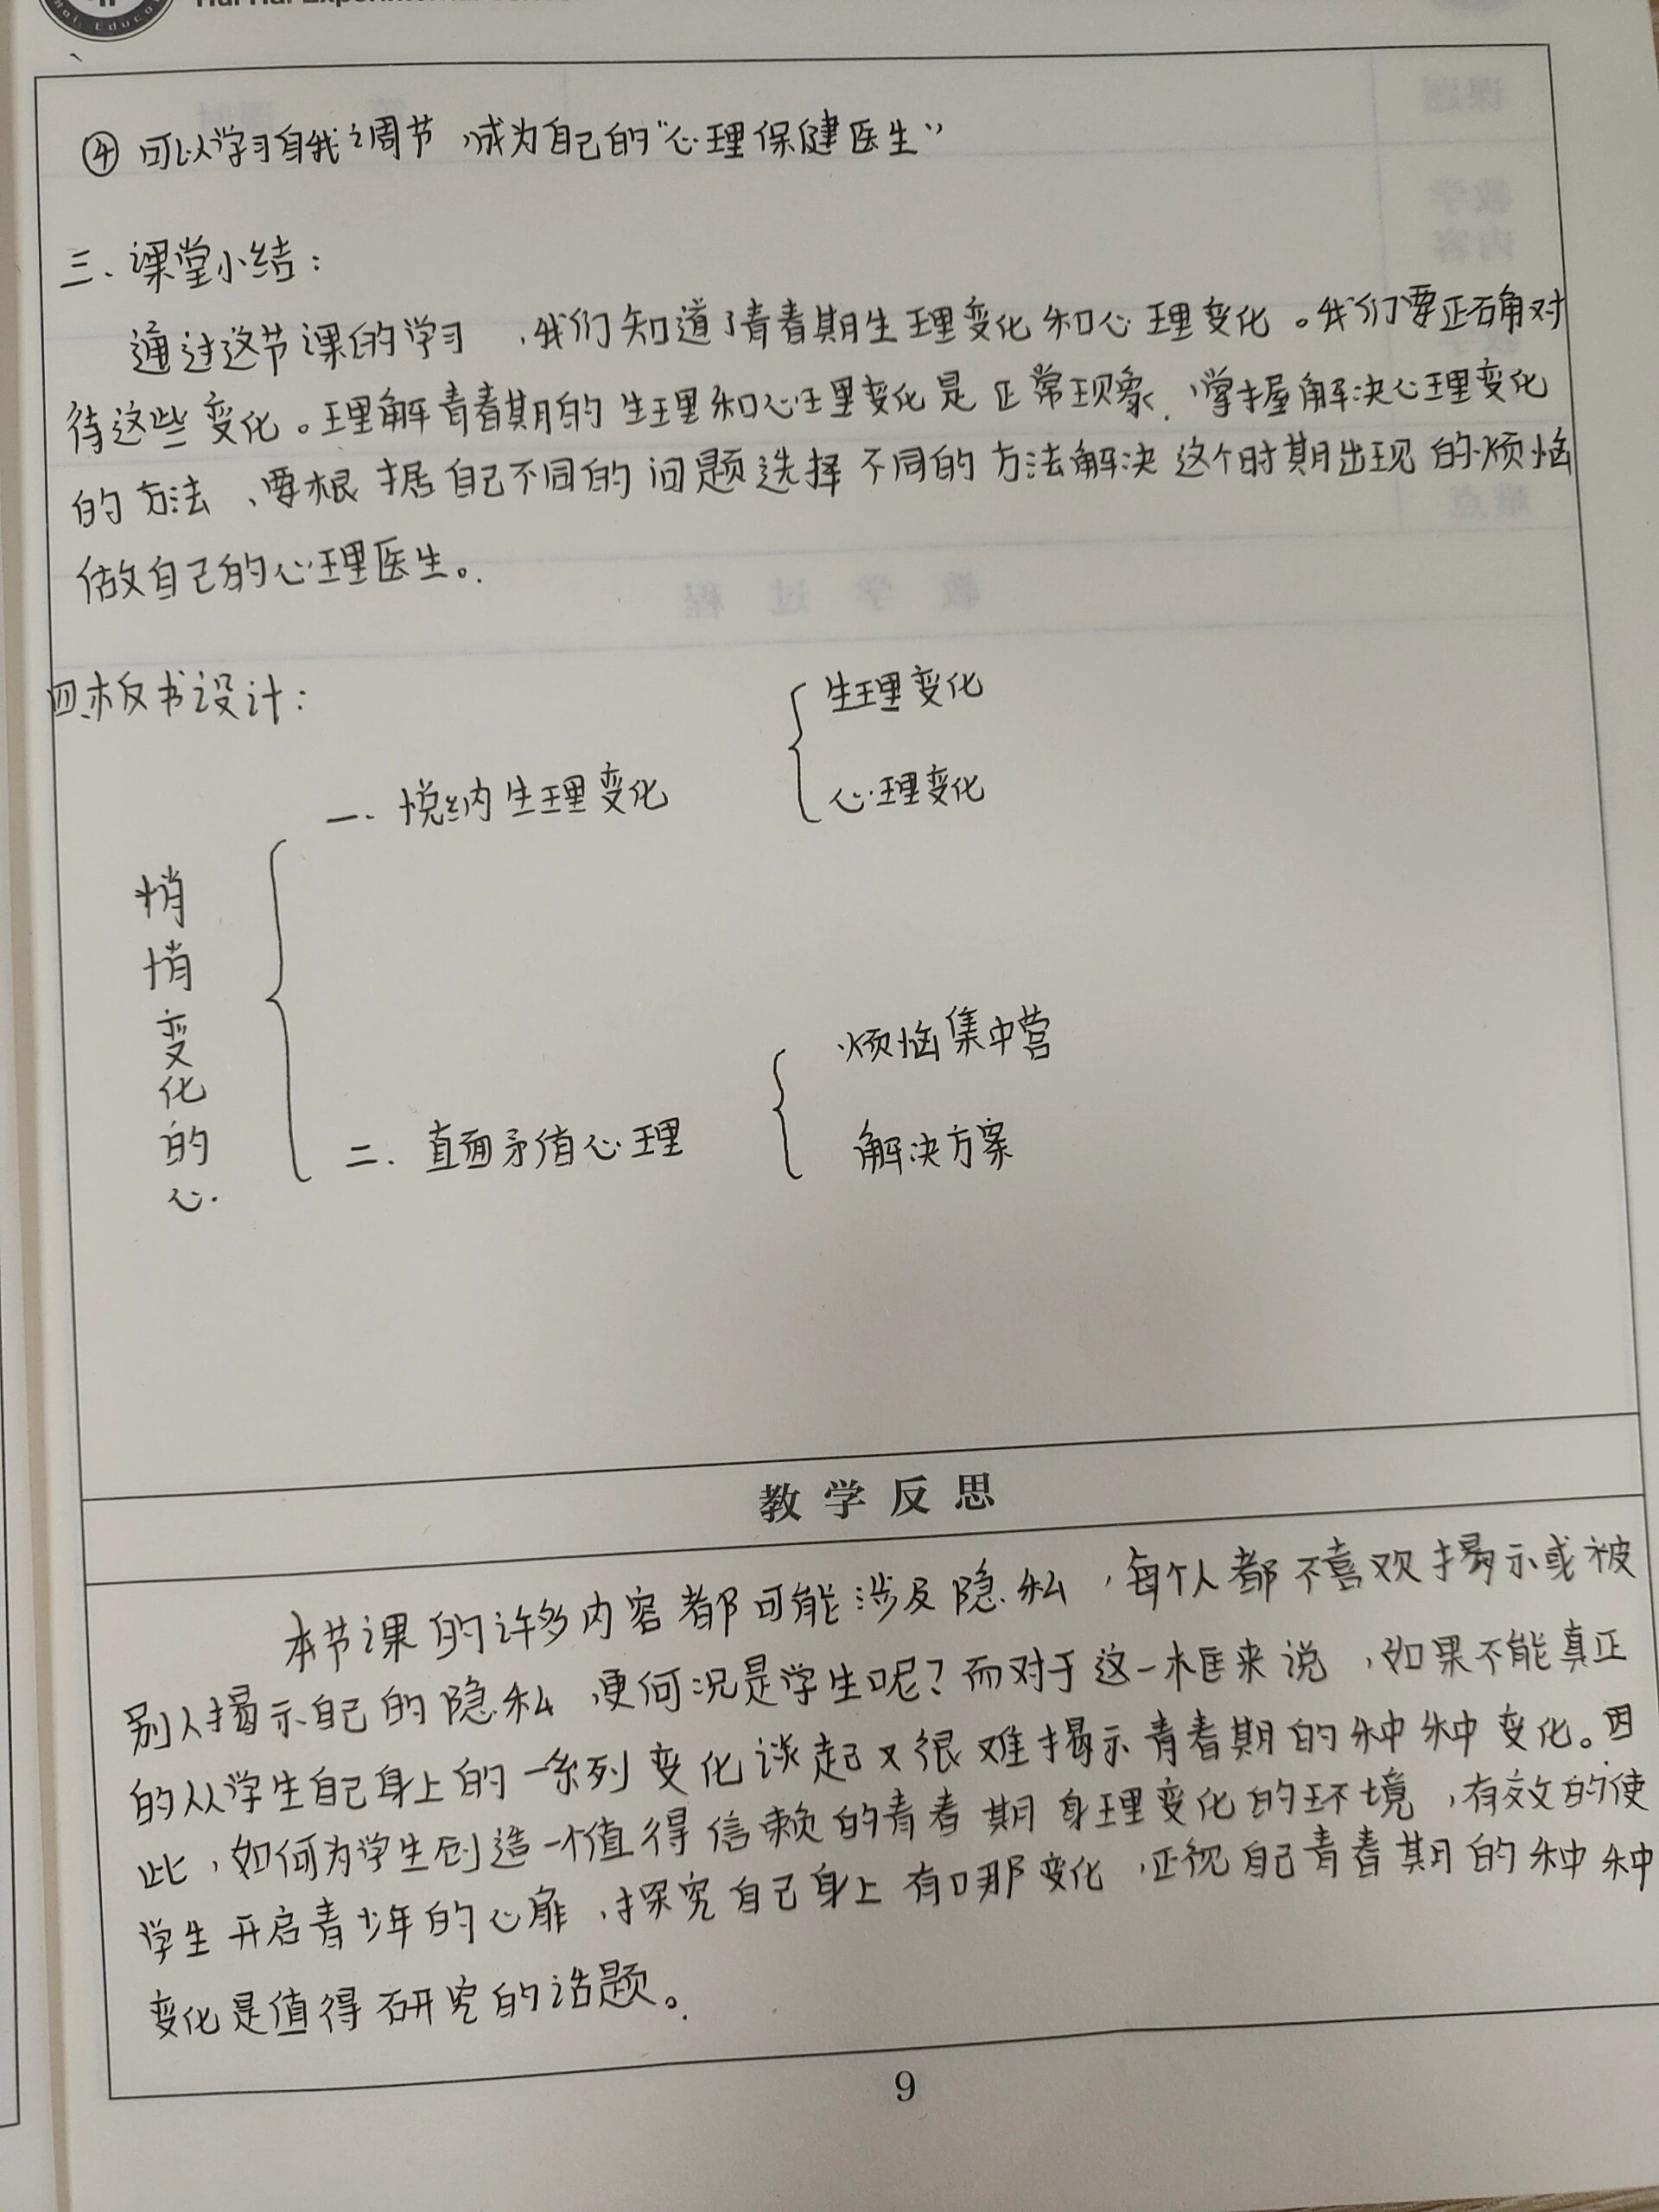 ④ 可以学习自我调节,成为自己的"心理保健医生"
三、课堂小结:
通过这节课的学习,我们知道了青春期生理变化和心理变化。我们要正确对
待这些变化。理解青春期的生理和心理变化是正常现象,掌握解决心理变化
的方法,要根据自己不同的问题选择不同的方法解决这个时期出现的烦恼
做自己的心理医生。
四、板书设计:
生理变化
一、悦纳生理变化
心理变化
悄悄变化的心
烦恼集中营
二、直面矛盾心理
解决方案
教学反思
本节课的许多内容都可能涉及隐私,每个人都不喜欢揭示或被
别人揭示自己的隐私,更何况是学生呢?而对于这一框来说,如果不能真正
的从学生自己身上的一系列变化谈起又很难揭示青春期的种种变化。因
此,如何为学生创造一个值得信赖的青春期身理变化的环境,有效的使
学生开启青少年的心扉,探究自己身上有哪变化,正视自己青春期的种种
变化是值得研究的话题。
9